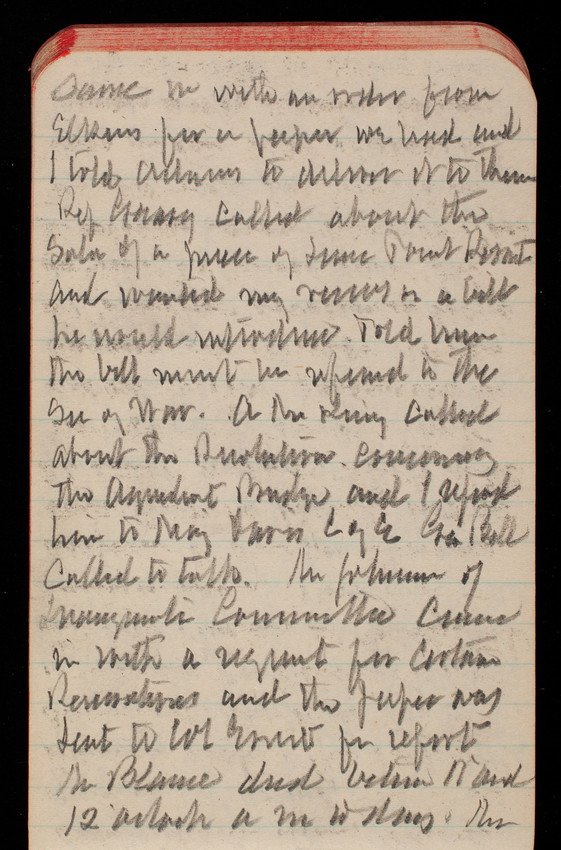 came in with an order from
Elkins for a paper we had and
I told Adams to deliver it to them
Rep Geary called about the
Sale of a piece of Lime Point
and wanted my views on a bill
he would introduce. Told him
the bill must be referred to the
Sec of War. A Mr King called
about the Resolution concerning
the Aqueduct Bridge and I referred
him to Maj Davis C of E Gen
Called to talk. The of
Committee Came
in with a request for Certain
Reservations and the paper was
Sent to Col Ernst for report
Mr Blaine died between 11 and
12 oclock a m to day. The